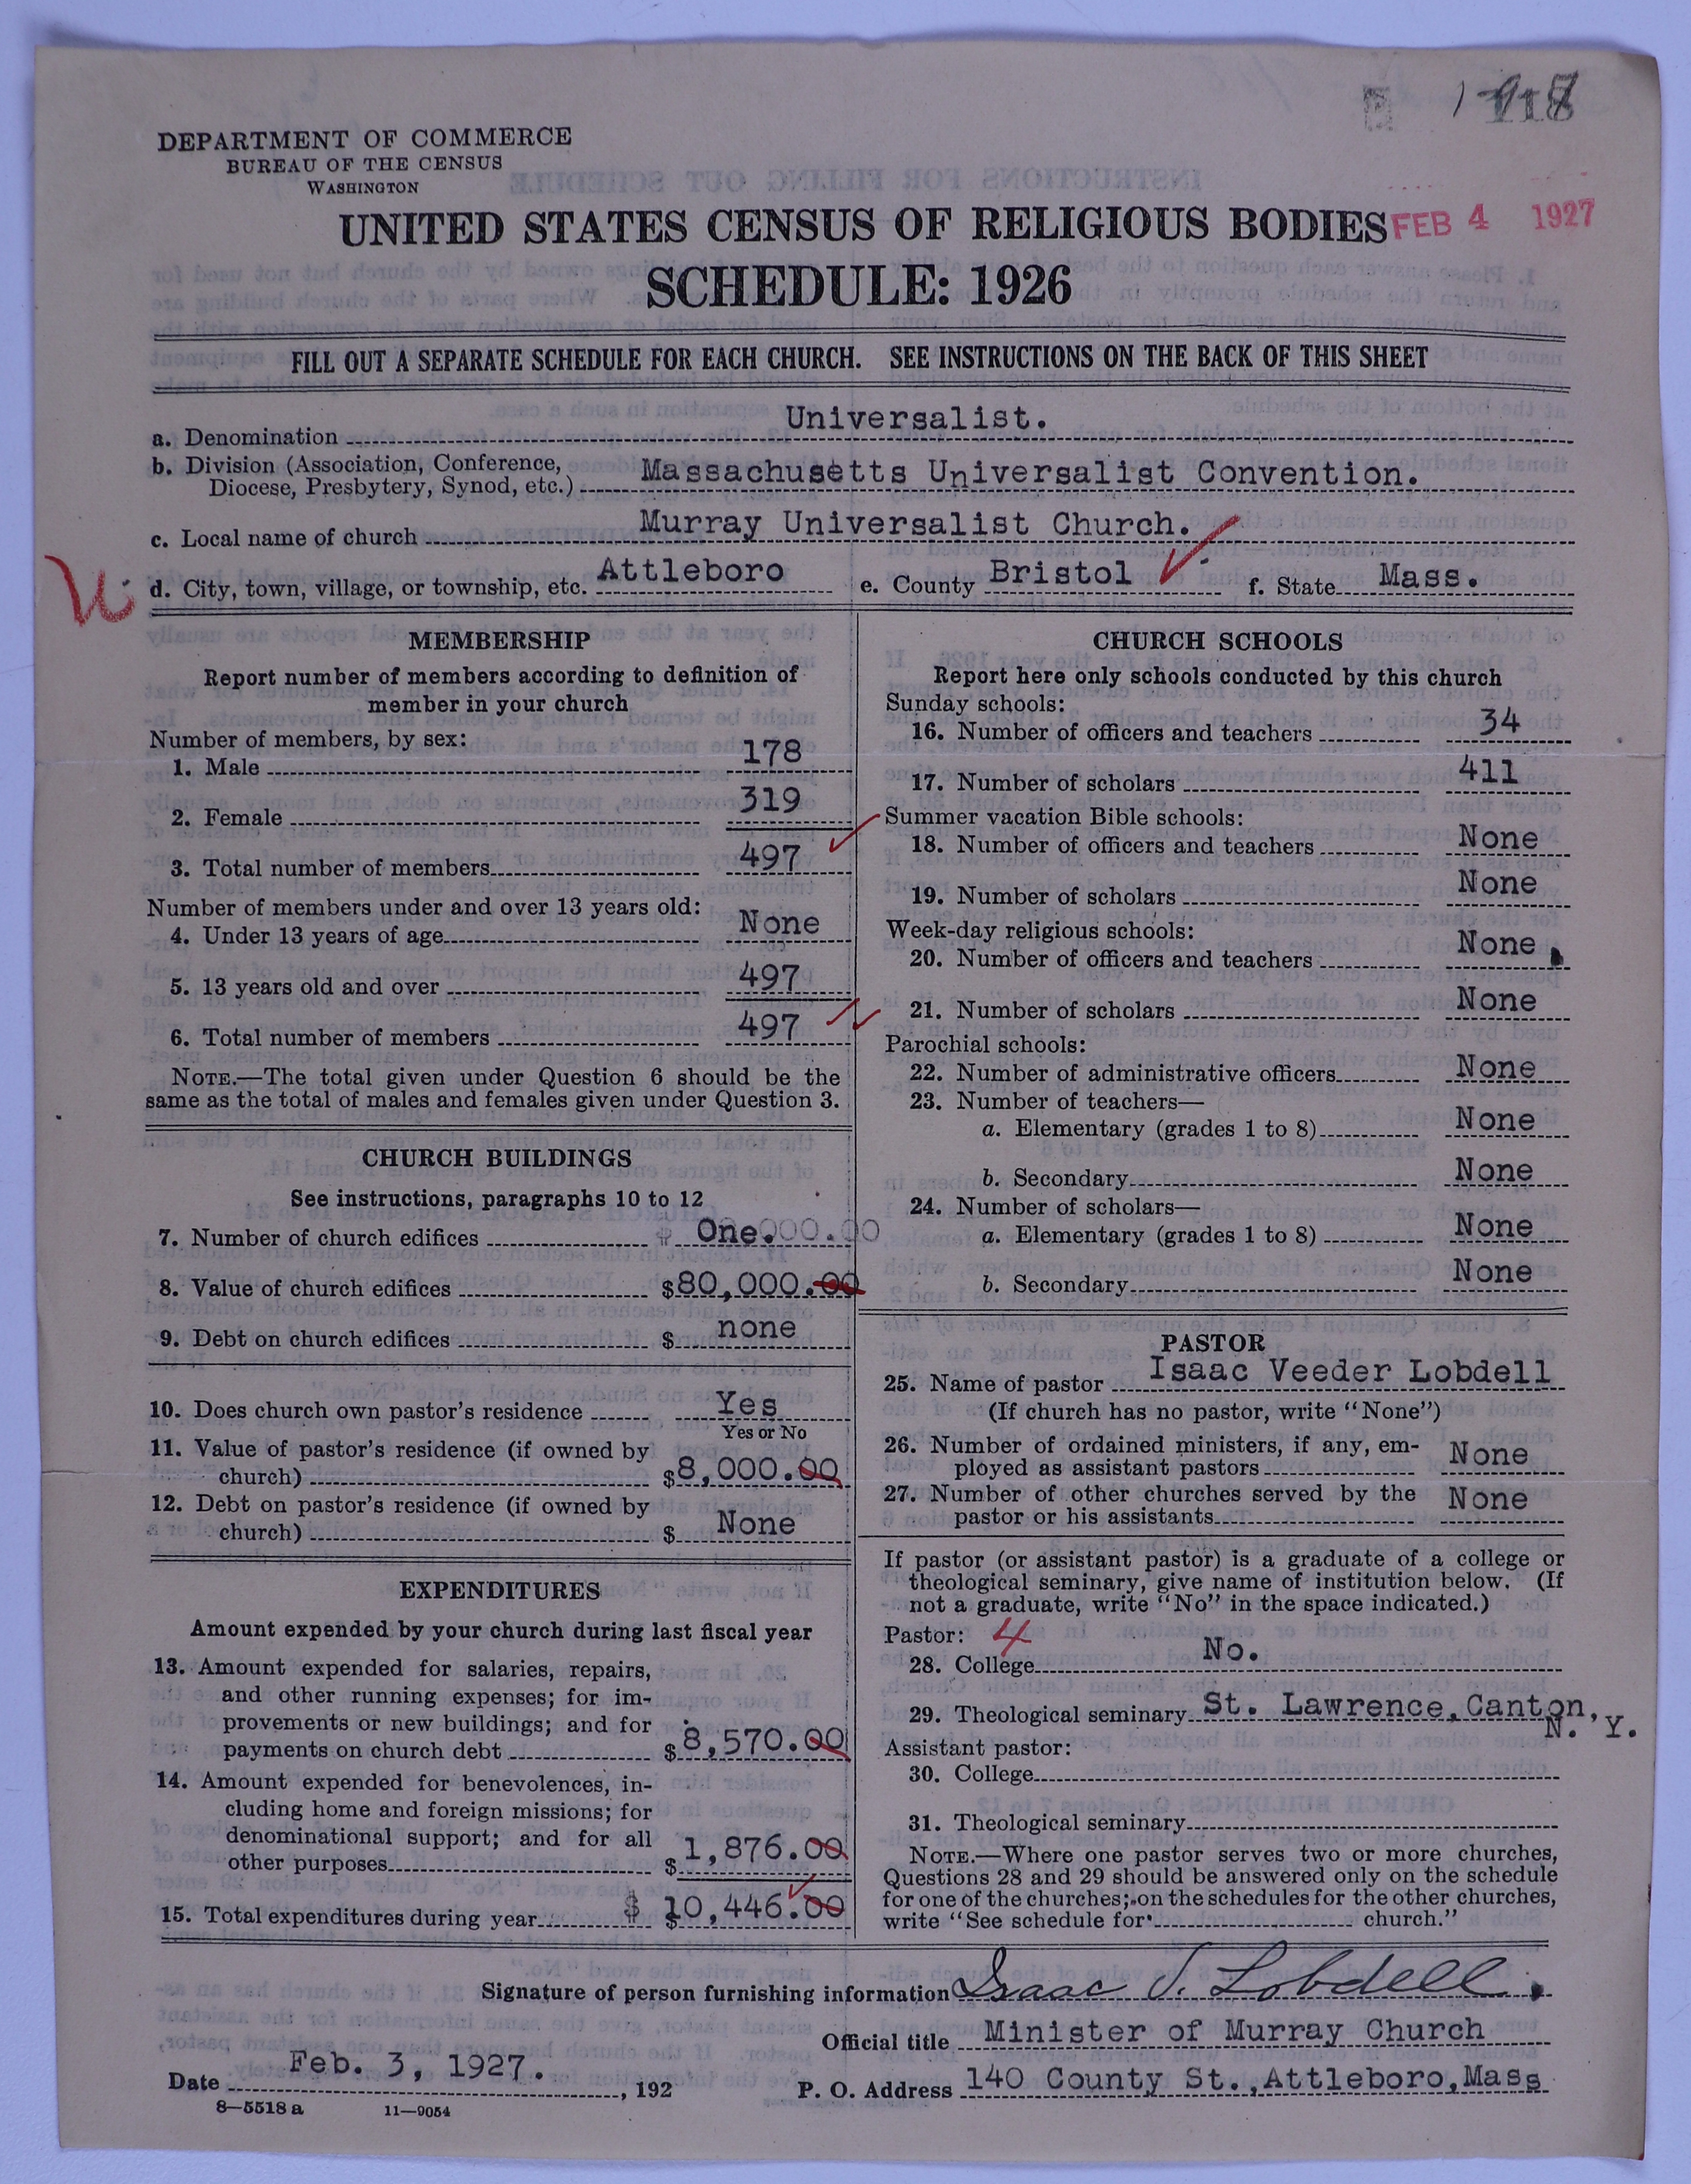 DEPARTMENT OF COMMERCE
BUREAU OF THE CENSUS
WASHINGTON
UNITED STATES CENSUS OF RELIGIOUS BODIES
FEB 4 1927
SCHEDULE: 1926
FILL OUT A SEPARATE SCHEDULE FOR EACH CHURCH. SEE INSTRUCTIONS ON THE BACK OF THIS SHEET
a. Denomination Universalist.
b. Division (Association, Conference,
Diocese, Presbytery, Synod, etc.) Massachusetts Universalist Convention.
c. Local name of church Murray Universalist Church.
d. City, town, village, or township, etc. Attleboro e. County Bristol f. State Mass.
MEMBERSHIP
Report number of members according to definition of
member in your church
Number of members, by sex:
1. Male 178
2. Female 319
3. Total number of members 497
Number of members under and over 13 years old:
4. Under 13 years of age None
5. 13 years old and over 497
6. Total number of members 497
NOTE.—The total given under Question 6 should be the
same as the total of males and females given under Question 3.
CHURCH BUILDINGS
See instructions, paragraphs 10 to 12
7. Number of church edifices One.
8. Value of church edifices $80,000.00
9. Debt on church edifices $ none
10. Does church own pastor's residence Yes
Yes or No
11. Value of pastor's residence (if owned by
church) $8,000.00
12. Debt on pastor's residence (if owned by
church) $ None
EXPENDITURES
Amount expended by your church during last fiscal year
13. Amount expended for salaries, repairs,
and other running expenses; for im-
provements or new buildings; and for
payments on church debt $8,570.00
14. Amount expended for benevolences, in-
cluding home and foreign missions; for
denominational support; and for all
other purposes $1,876.00
15. Total expenditures during year $ $10,446.00
CHURCH SCHOOLS
Report here only schools conducted by this church
Sunday schools:
16. Number of officers and teachers 34
17. Number of scholars 411
Summer vacation Bible schools:
18. Number of officers and teachers None
19. Number of scholars None
Week-day religious schools:
20. Number of officers and teachers None
21. Number of scholars None
Parochial schools:
22. Number of administrative officers None
23. Number of teachers—
a. Elementary (grades 1 to 8) None
b. Secondary None
24. Number of scholars—
a. Elementary (grades 1 to 8) None
b. Secondary None
PASTOR
25. Name of pastor Isaac Veeder Lobdell
(If church has no pastor, write "None")
26. Number of ordained ministers, if any, em-
ployed as assistant pastors None
27. Number of other churches served by the
pastor or his assistants None
If pastor (or assistant pastor) is a graduate of a college or
theological seminary, give name of institution below. (If
not a graduate, write "No" in the space indicated.)
Pastor: 4
28. College No.
29. Theological seminary St. Lawrence, Canton,
N. Y.
Assistant pastor:
30. College
31. Theological seminary
NOTE.—Where one pastor serves two or more churches,
Questions 28 and 29 should be answered only on the schedule
for one of the churches; on the schedules for the other churches,
write "See schedule for church."
Signature of person furnishing information Isaac V. Lobdell
Official title Minister of Murray Church
Date Feb. 3, 1927. , 192
P. O. Address 140 County St., Attleboro, Mass
8—5518 a 11—9054